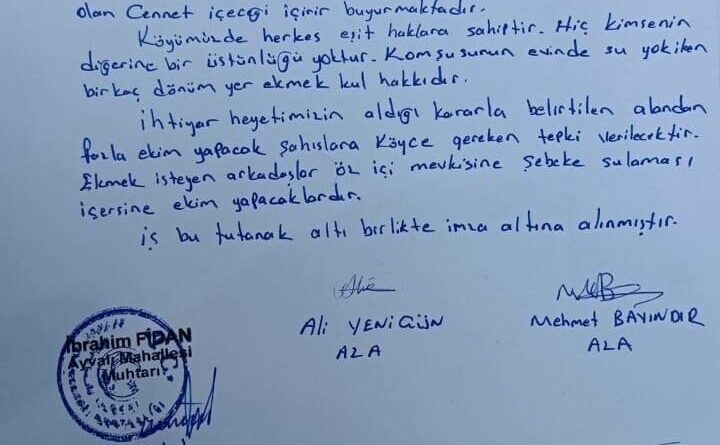 olan Cennet içeceği içirir buyurmaktadır.
Köyümüzde herkes eşit haklara sahiptir. Hiç kimsenin
diğerine bir üstünlüğü yoktur. Komşusunun evinde su yokken
birkaç dönüm yer ekmek kul hakkıdır.
İhtiyar heyetimizin aldığı kararla belirtilen alandan
fazla ekim yapacak şahıslara Köyce gereken tepki verilecektir.
Ekmek isteyen arkadaşlar öz içi mevkisine Şebeke sulaması
içersine ekim yapacaklardır.
iş bu tutanak altı birlikte imza altına alınmıştır.
Ali YENİGÜN
AZA
Mehmet BAYINDIR
AZA
İbrahim FİDAN
Ayvalı Mahallesi
Muhtarı